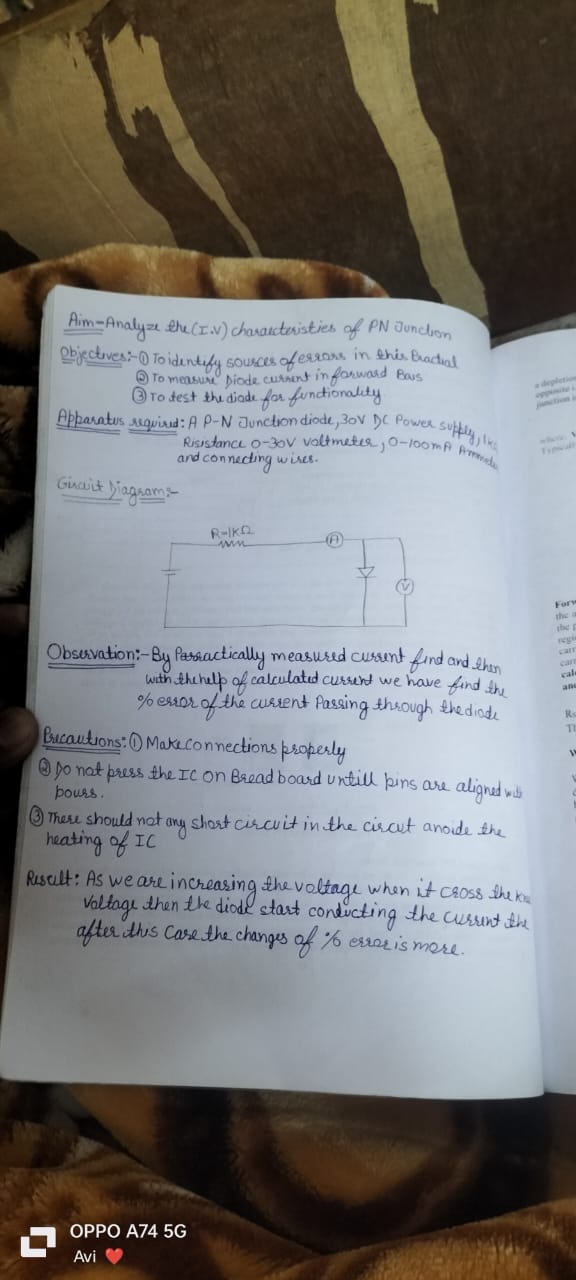 Aim-Analyze the (I.V) characteristics of PN Junction
Objectives:- ① To identify sources of errors in this Practial
② To measure Diode current in forward Bais
③ To test the diode for functionality
Apparatus required: A P-N Junction diode, 30V DC Power supply, 1K
Risistance 0-30V voltmeter, 0-100mA Ammeter
and connecting wires.
Circuit Diagram:-
R-1KΩ
A
V
Observation:- By Parractically measured current find and then
with the help of calculated current we have find the
% error of the current Passing through the diode
Precautions: ① Make connections properly
② Do not press the IC on Bread board untill pins are aligned with
pours.
③ There should not any short circuit in the circut anoide the
heating of IC
Result: As we are increasing the voltage when it cross the
voltage then the diode start conducting the current the
after this Case the changes of % error is more.
a depletion
opposite
junction
where
Typicall
Forw
the a
the p
regi
carr
carr
cal
and
OPPO A74 5G
Avi ❤️